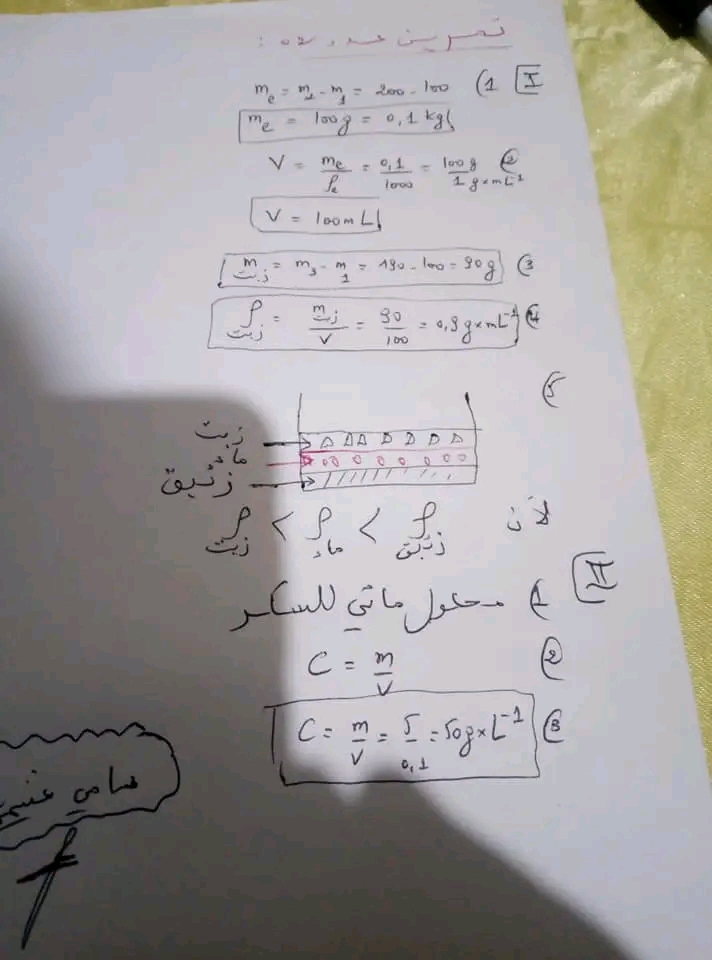 تمرين عدد 02 :
I (1 mₑ = m₂ - m₁ = 200 - 100
mₑ = 100g = 0,1 kg
(2 V = mₑ/ρₑ = 0,1/1000 = 100g/1 g×mL⁻¹
V = 100mL
(3 m زيت = m₃ - m₁ = 190 - 100 = 90g
(4 ρ زيت = m زيت/V = 90/100 = 0,9 g×mL⁻¹
(5
زيت
ماء
زئبق
لأن ρ زئبق > ρ ماء > ρ زيت
II (1 محلول مائي للسكر
(2 C = m/V
(3 C = m/V = 5/0,1 = 50g×L⁻¹
سامي